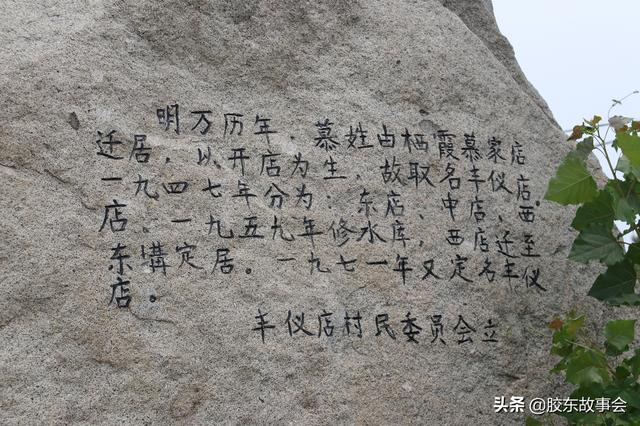 明万历年，慕姓由栖霞慕家店
迁居，以开店为生，故取名丰仪店。
一九四七年分为：东店、中店、西
店。一九五九年修水库，西店迁至
东耩定居。一九七一年又定名丰仪
店。
丰仪店村民委员会立
头条 @胶东故事会